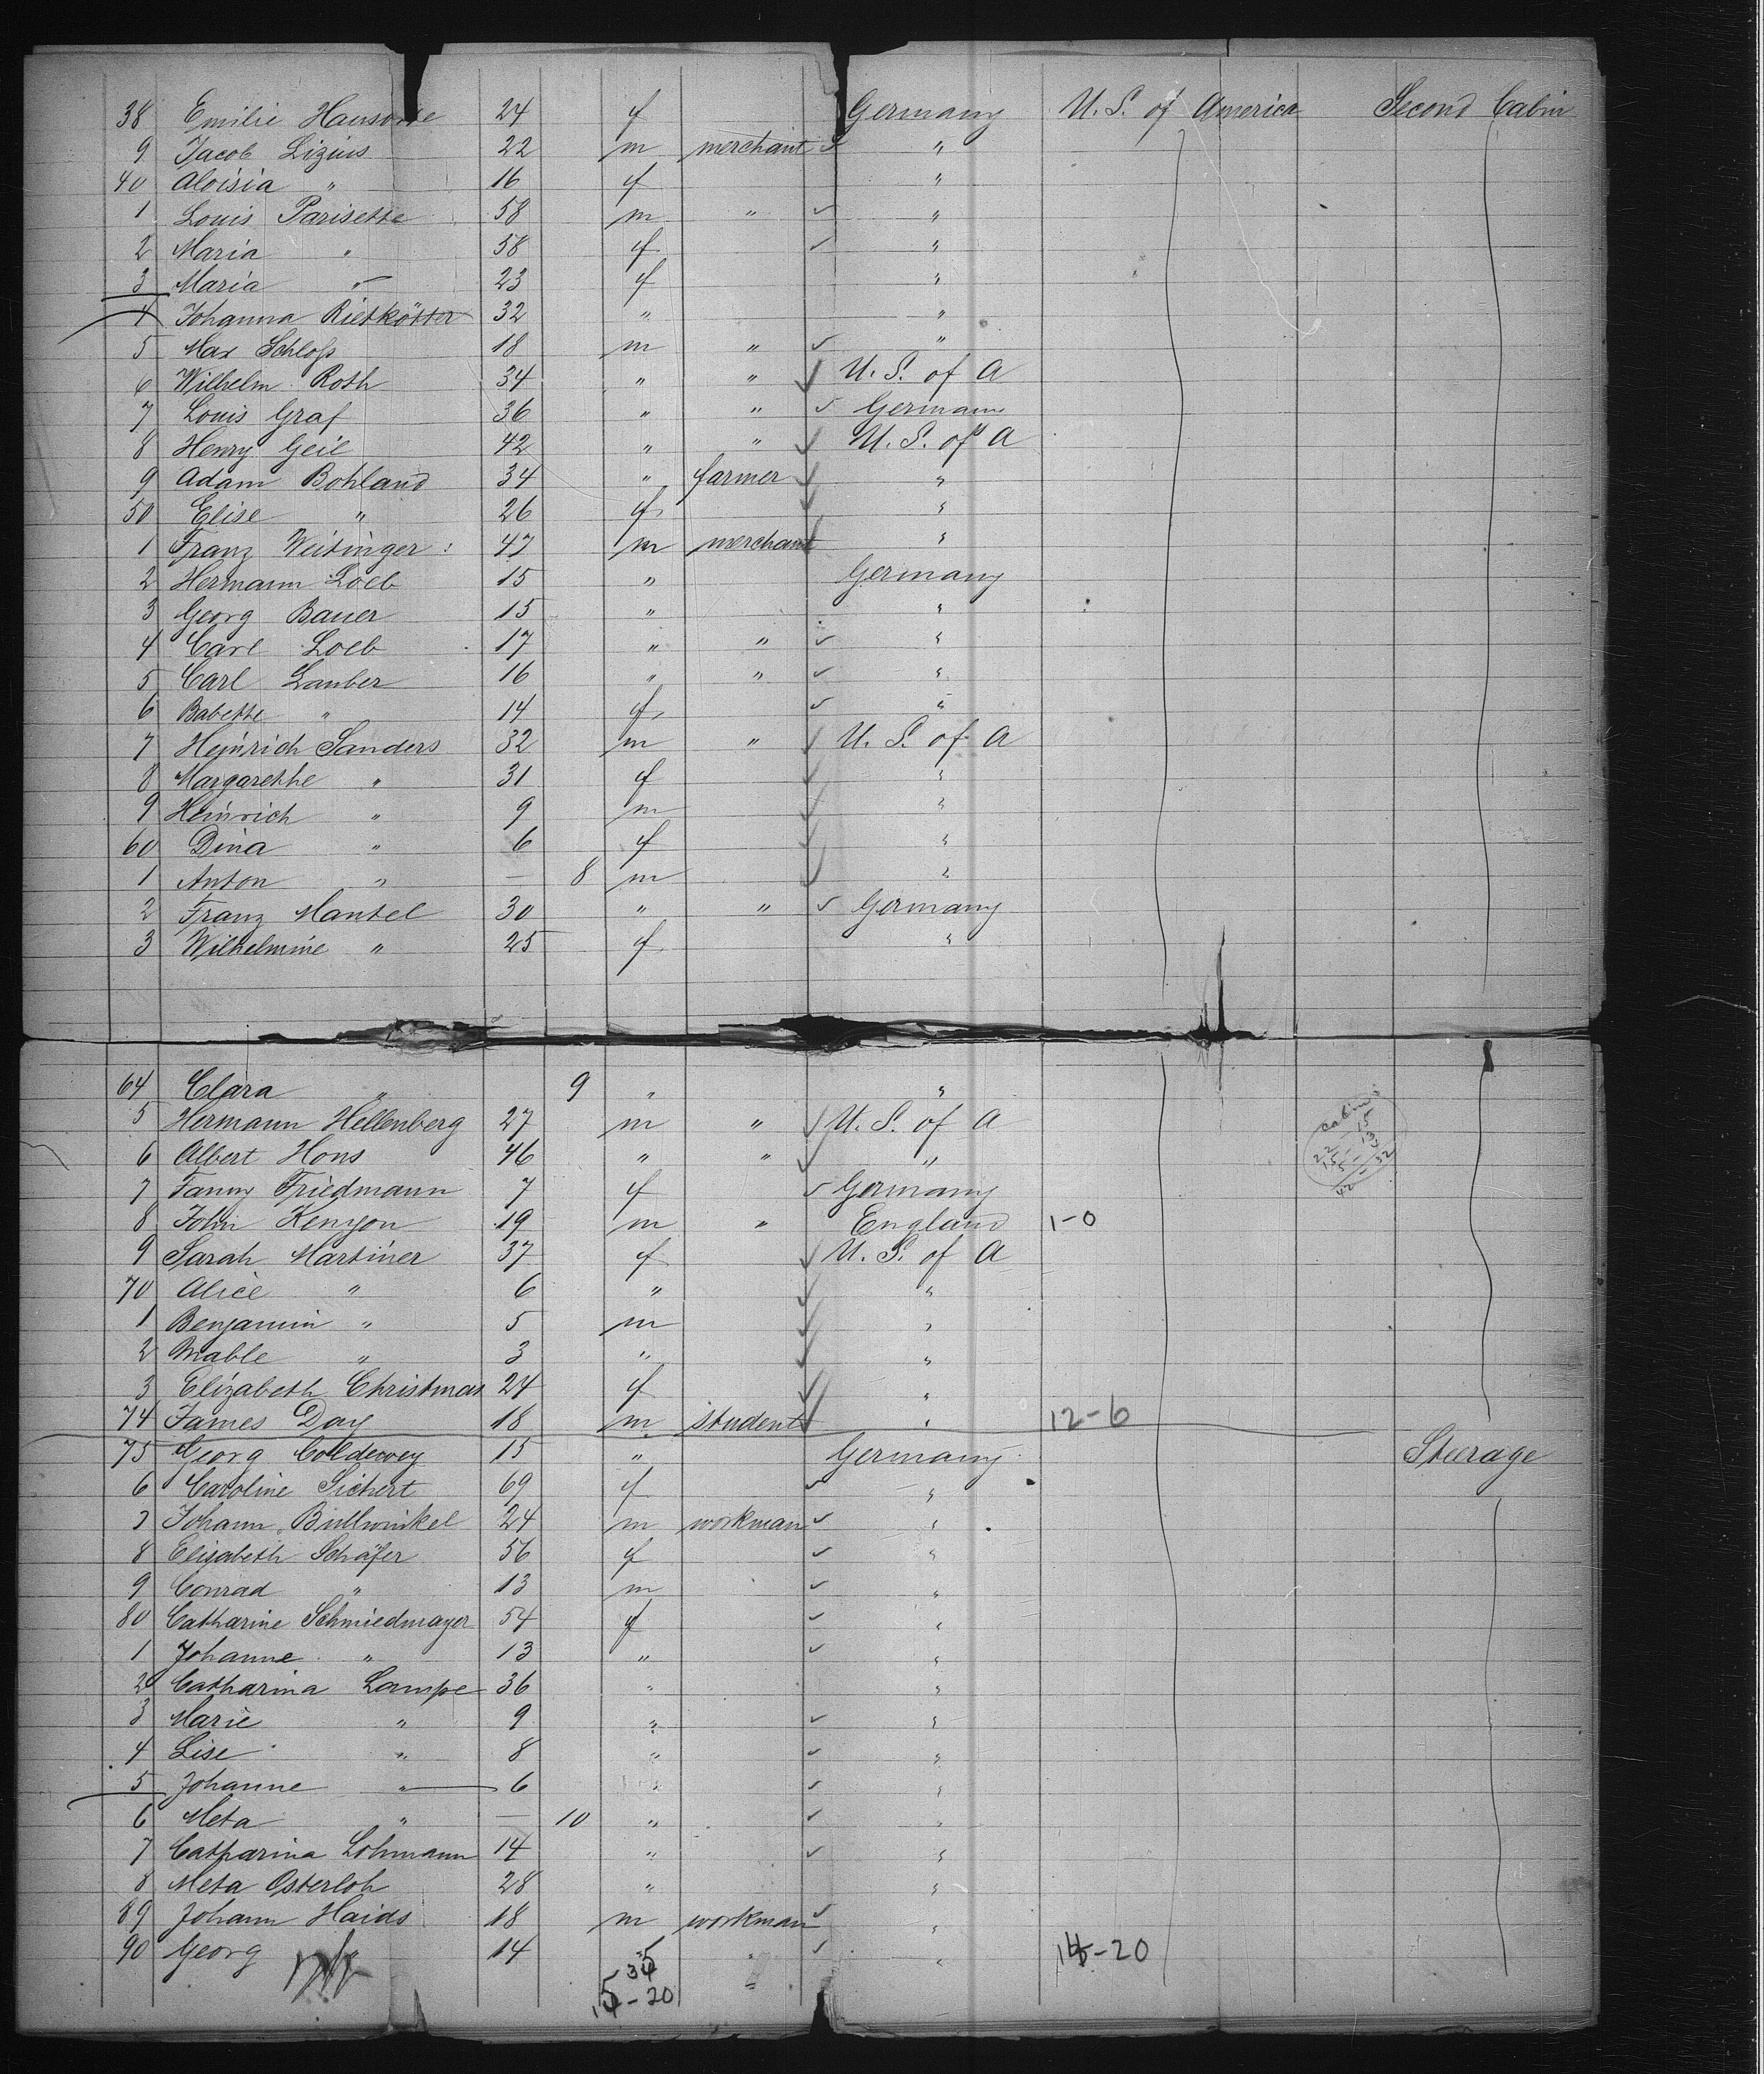 38 Emilie Hansotte 24 f Germany U. S. of America Second Cabin
9 Jacob Lizius 22 m merchant ✓ "
40 Aloisia " 16 f "
1 Louis Parisette 58 m " ✓ "
2 Maria " 58 f ✓ "
3 Maria " 23 f "
4 Johanna Rietkötter 32 " "
5 Max Schloß 18 m " ✓ "
6 Wilhelm Roth 34 " " ✓ U. S. of A
7 Louis Graf 36 " " ✓ Germany
8 Henry Geil 42 " " ✓ U. S. of A
9 Adam Bohland 34 " farmer ✓ "
50 Elise " 26 f ✓ "
1 Franz Weitinger 47 m merchant "
2 Hermann Loeb 15 " Germany
3 Georg Bauer 15 " "
4 Carl Loeb 17 " " ✓ "
5 Carl Lauber 16 " " ✓ "
6 Babette " 14 f ✓ "
7 Heinrich Sanders 32 m " ✓ U. S. of A
8 Margarethe " 31 f ✓ "
9 Heinrich " 9 m ✓ "
60 Dina " 6 f ✓ "
1 Anton " — 8 m ✓ "
2 Franz Mantel 30 " " ✓ Germany
3 Wilhelmine " 25 f "
64 Clara " 9 " "
5 Hermann Hellenberg 27 m " ✓ U. S. of A
6 Albert Hons 46 " " ✓ "
7 Fanny Friedmann 7 f ✓ Germany
8 John Kenyon 19 m " England 1-0
9 Sarah Martiner 37 f ✓ U. S. of A
70 Alice " 6 " ✓ "
1 Benjamin " 5 m ✓ "
2 Mable " 3 " ✓ "
3 Elizabeth Christmas 24 f ✓ "
74 James Day 18 m student ✓ " 12-6
75 Georg Coldewey 15 " Germany Steerage
6 Caroline Sichert 69 f ✓ "
7 Johann Bullwinkel 24 m workman ✓ "
8 Elisabeth Schäfer 56 f ✓ "
9 Conrad " 13 m ✓ "
80 Catharine Schmiedmayer 54 f ✓ "
1 Johanne " 13 " ✓ "
2 Catharina Lampe 36 " "
3 Marie " 9 " ✓ "
4 Lise " 8 " ✓ "
5 Johanne " 6 " ✓ "
6 Meta " — 10 " ✓ "
7 Catharina Lohmann 14 " ✓ "
8 Meta Osterloh 28 " "
89 Johann Haids 18 m workman ✓ "
90 Georg " 14 " " ✓ "